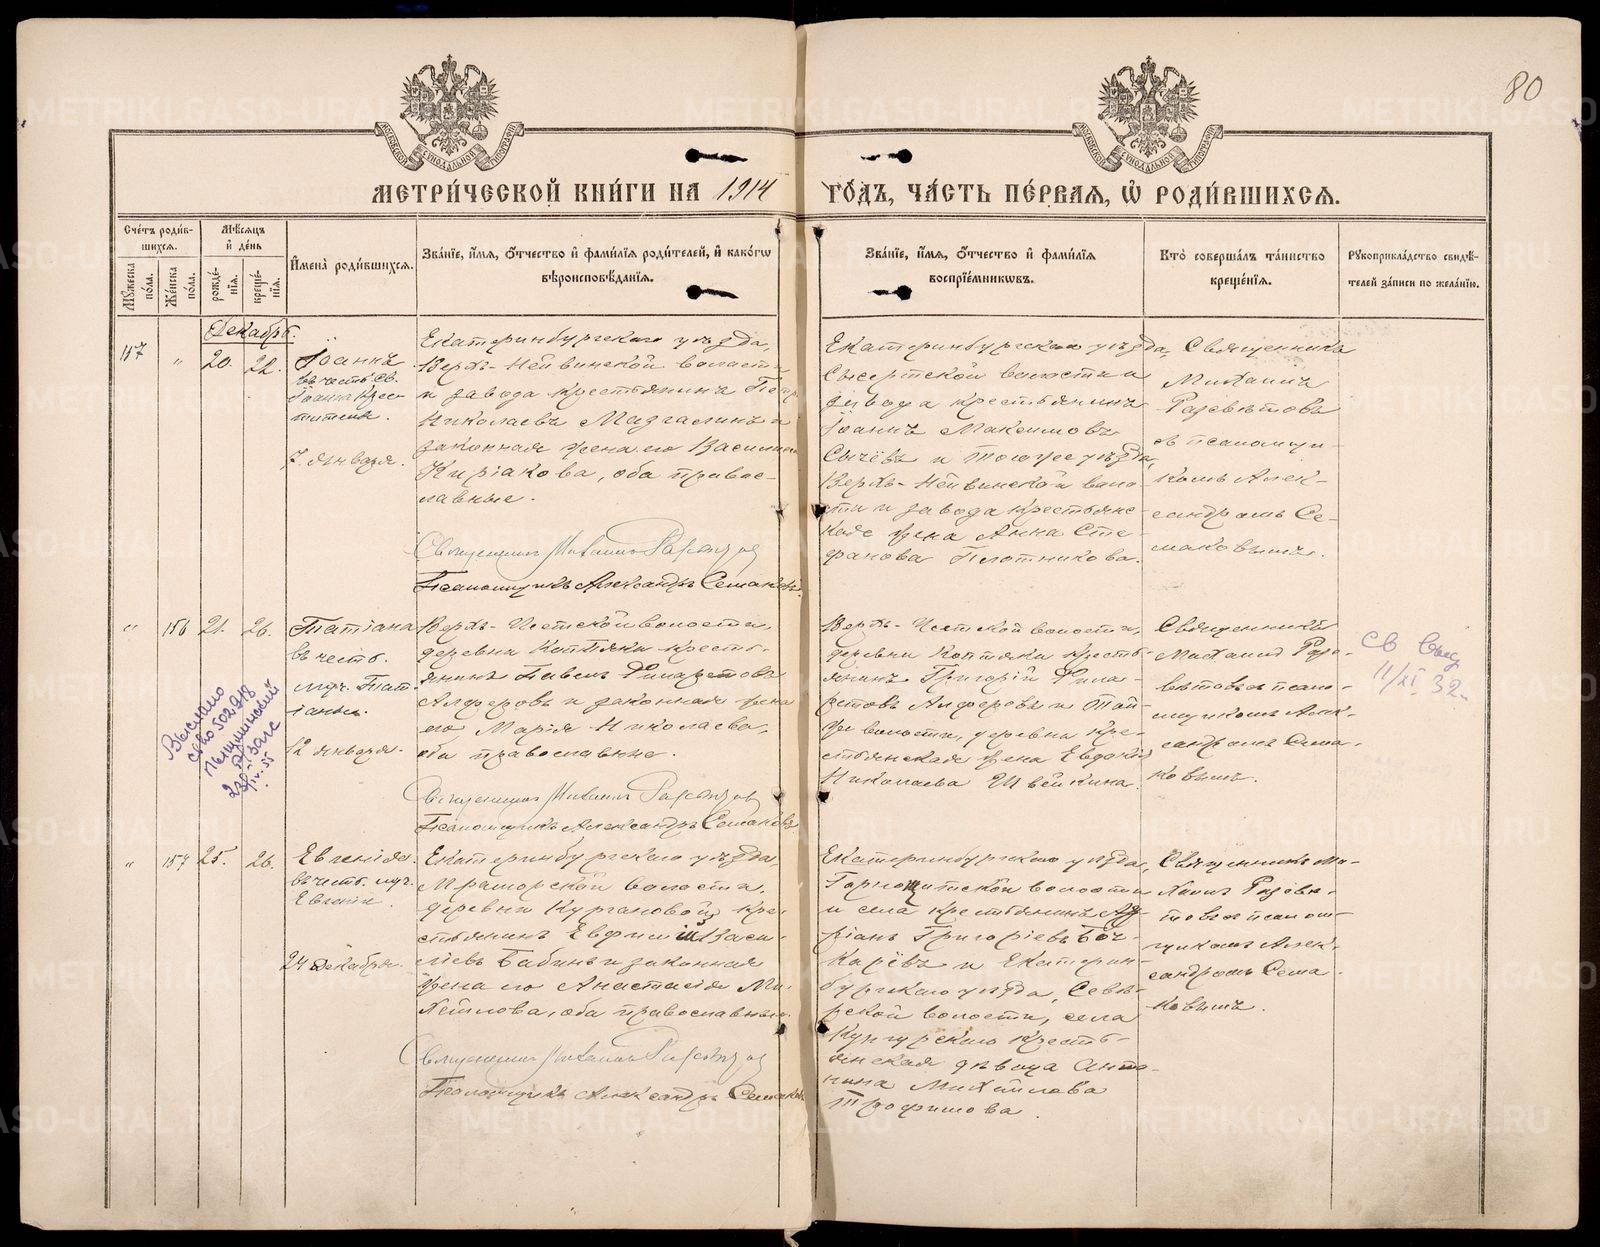 80
МЕТРИ́ЧЕСКОЙ КНИ́ГИ НА 1914 ГО́ДЪ, ЧА́СТЬ ПЕ́РВАЯ, Ѡ҆ РОДИ́ВШИХСѦ.
Сче́тъ роди́в-
шихсѧ.
Мꙋ́жеска по́ла.
Же́нска по́ла.
Мѣ́сѧцъ
и҆ де́нь
рожде́-
нїѧ.
креще́-
нїѧ.
И҆мена̀ роди́вшихсѧ.
Зва́нїе, и҆́мѧ, ѻ҆́тчество и҆ фами́лїѧ роди́телей, и҆ како́гѡ
вѣроисповѣ́данїѧ.
Зва́нїе, и҆́мѧ, ѻ҆́тчество и҆ фами́лїѧ
воспрїе́мникѡвъ.
Кто̀ соверша́лъ та́инство
креще́нїѧ.
Рꙋкоприкла́дство свидѣ́-
телей за́писи по жела́нїю.
Декабрь.
157
"
20.
22.
Іоаннъ
въ честь Св.
Іоанна Крес-
тителя.
7. января.
Екатеринбургскаго уѣзда,
Верхъ-Нейвинской волости
и завода крестьянинъ Петръ
Николаевъ и
законная жена его Василисса
Киріакова, оба право-
славные.
Священникъ Михаилъ
Псаломщикъ Александръ Семаковъ.
Екатеринбургскаго уѣзда,
Сысертской волости и
завода крестьянинъ
Іоаннъ Максимовъ
Сычёвъ и того же уѣзда,
Верхъ-Нейвинской воло-
сти и завода крестьянс-
кая жена Анна Сте-
фанова Плотникова.
Священникъ
Михаилъ
съ псаломщи-
комъ Алек-
сандромъ Се-
маковымъ.
"
156
21.
26.
Татіана
въ честь
муч. Тат-
іаны.
12 января.
Верхъ-Исетской волости,
деревни Коптяки кресть-
янинъ Павелъ Филаретовъ
Алферовъ и законная жена
его Марія Николаева,
оба православные.
Священникъ Михаилъ
Псаломщикъ Александръ Семаковъ
Верхъ-Исетской волости,
деревни Коптяки кресть-
янинъ Григорій Фила-
ретовъ Алферовъ и той
же волости, деревни кре-
стьянская жена Евдокія
Николаева Швейкина.
Священникъ
Михаилъ
псало-
мщикомъ Алек-
сандромъ Сема-
ковымъ.
Св
11/XI 32
Выслано
св-во 502918
загс
23/IV-55
"
157
25.
26.
Евгенія
въ честь муч.
Евгеніи.
24 декабря.
Екатеринбургскаго уѣзда,
Мраморской волости
деревни Кургановой, кре-
стьянинъ Евфимій Васи-
ліевъ Бабинъ и законная
жена его Анастасія Ми-
хеилова, оба православные.
Священникъ Михаилъ
Псаломщикъ Александръ Семаковъ
Екатеринбургскаго уѣзда,
Горнощитской волости
и села крестьянинъ Ад-
ріанъ Григоріевъ Боч-
карёвъ и Екатерин-
бургскаго уѣзда, Севѣ-
рской волости, села
Кунгурскаго кресть-
янская дѣвица Анто-
нина Михайлова
Трофимова.
Священникъ Ми-
хаилъ
псалом-
щикомъ Алек-
сандромъ Сема-
ковымъ.